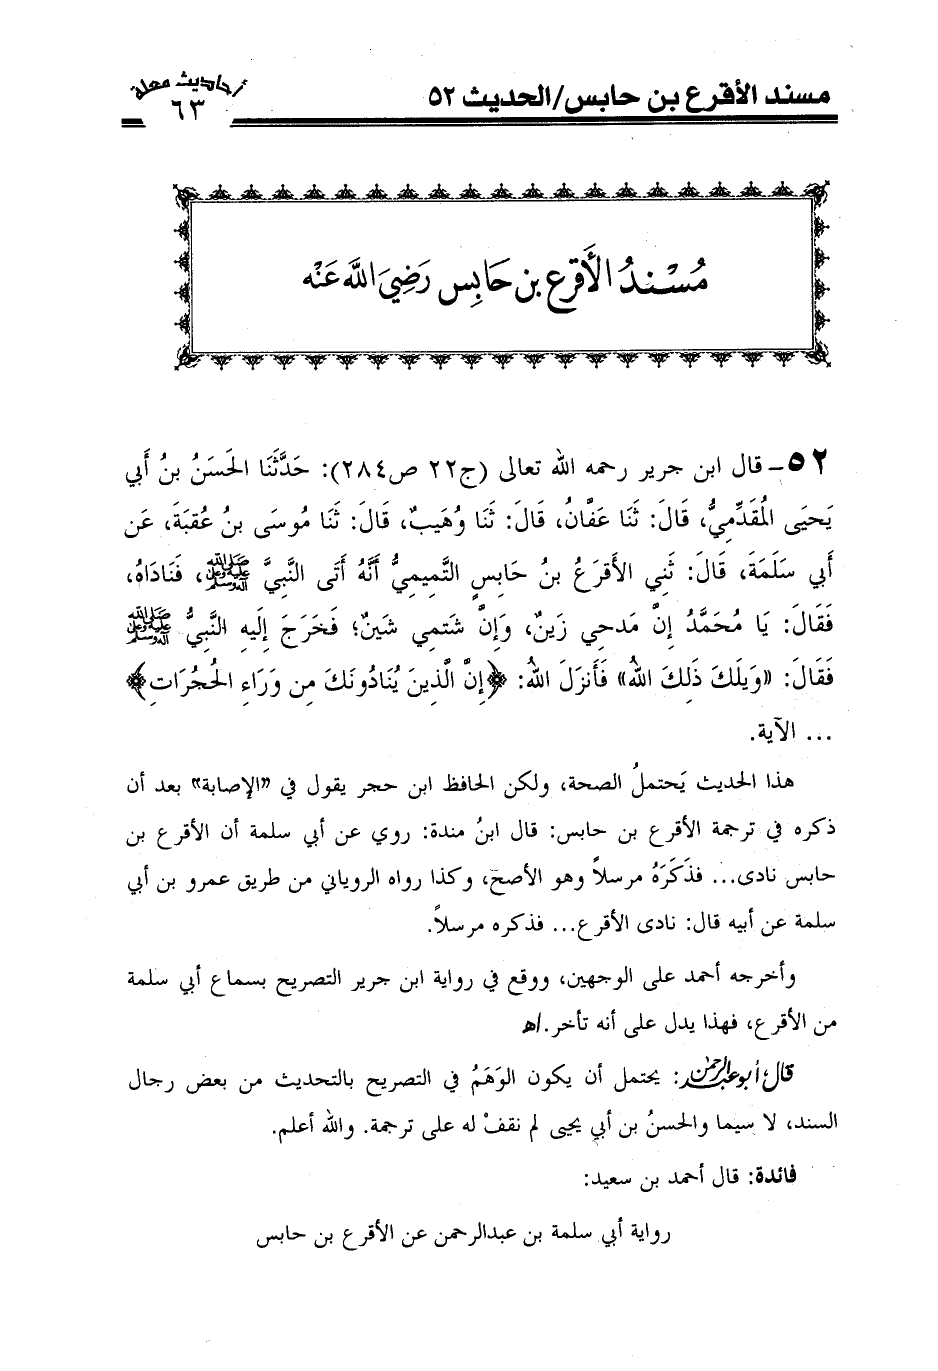 مسند الأقرع بن حابس/الحديث ٥٢
أحاديث معلة
٦٣
مُسْنَدُ الأَقرع بن حَابِس رَضِيَ اللَّه عَنْه
٥٢ـ قال ابن جرير رحمه الله تعالى (ج٢٢ ص٢٨٤): حَدَّثَنَا الحَسَنُ بنُ أَبي
يَحيَى المُقَدِّميُّ، قَالَ: ثَنَا عَفَّانُ، قَالَ: ثَنَا وُهَيبٌ، قَالَ: ثَنَا مُوسَى بنُ عُقبَةَ، عَن
أَبي سَلَمَةَ، قَالَ: ثَنِي الأَقرَعُ بنُ حَابِسٍ التَّمِيمِيُّ أَنَّهُ أَتَى النَّبِيَّ ﷺ، فَنَادَاهُ،
فَقَالَ: يَا مُحَمَّدُ إِنَّ مَدحِي زَينٌ، وَإِنَّ شَتمِي شَينٌ؛ فَخَرَجَ إِلَيهِ النَّبِيُّ ﷺ
فَقَالَ: «وَيلَكَ ذَلِكَ اللهُ» فَأَنزَلَ اللهُ: ﴿إِنَّ الَّذِينَ يُنَادُونَكَ مِن وَرَاءِ الحُجُرَاتِ﴾
... الآية.
هذا الحديث يَحتملُ الصحة، ولكن الحافظ ابن حجر يقول في «الإصابة» بعد أن
ذكره في ترجمة الأقرع بن حابس: قال ابنُ مندة: روي عن أبي سلمة أن الأقرع بن
حابس نادى... فذَكَرَهُ مرسلاً وهو الأصح، وكذا رواه الروياني من طريق عمرو بن أبي
سلمة عن أبيه قال: نادى الأقرع... فذكره مرسلاً.
وأخرجه أحمد على الوجهين، ووقع في رواية ابن جرير التصريح بسماع أبي سلمة
من الأقرع، فهذا يدل على أنه تأخر.اهـ
قال أبو عبد الرحمن: يحتمل أن يكون الوَهَمُ في التصريح بالتحديث من بعض رجال
السند، لا سيما والحسنُ بن أبي يحيى لم نقفْ له على ترجمة. والله أعلم.
فائدة: قال أحمد بن سعيد:
رواية أبي سلمة بن عبدالرحمن عن الأقرع بن حابس